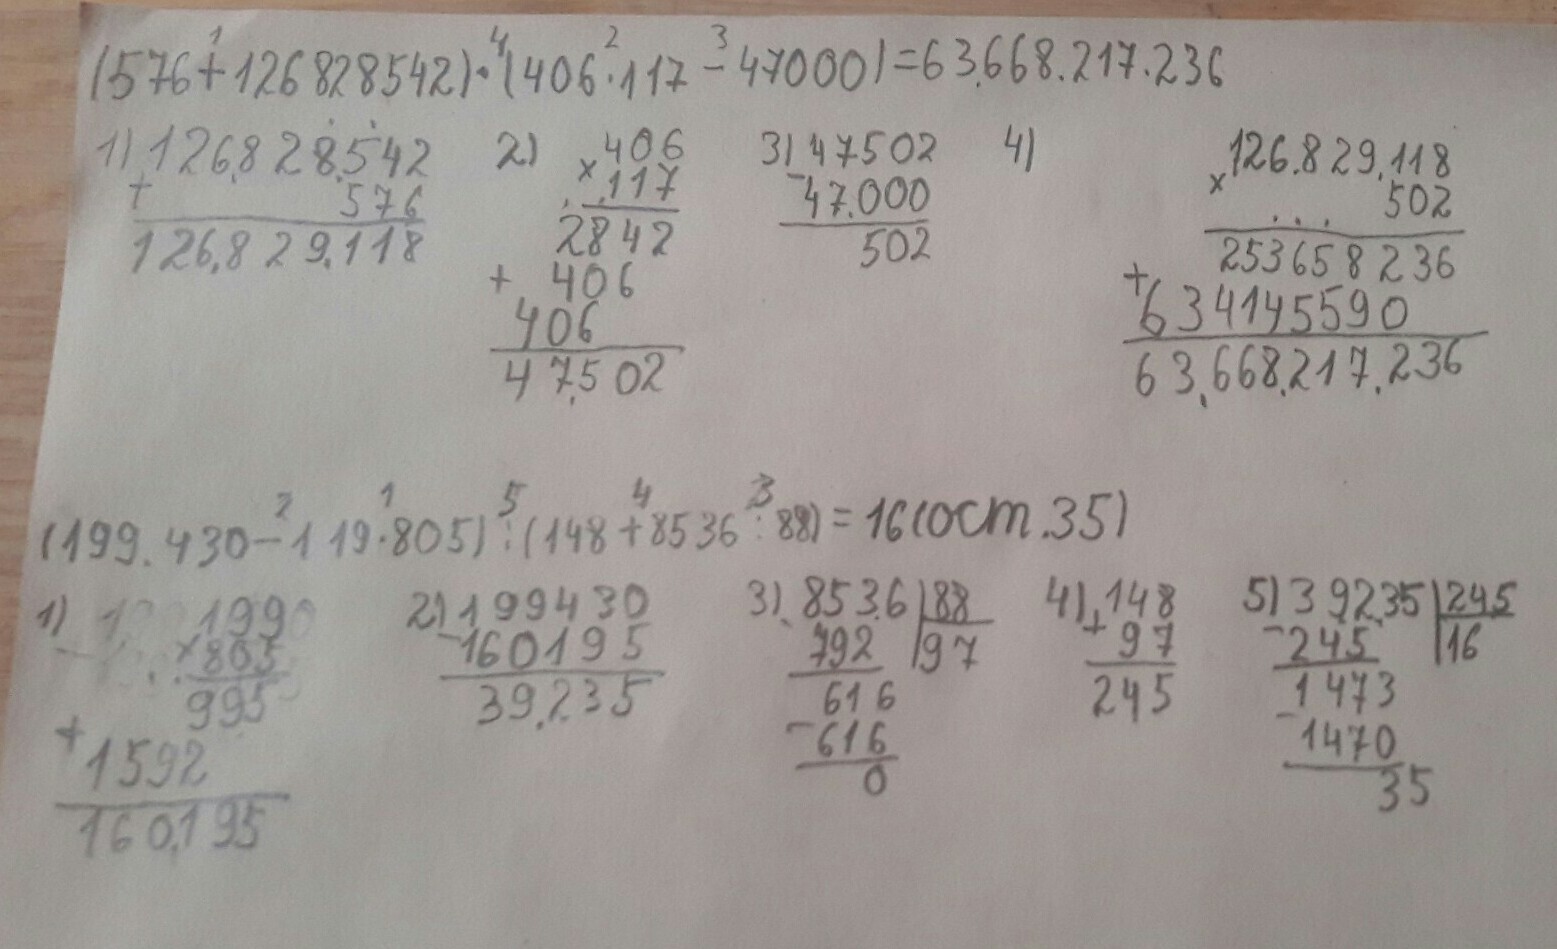 (576+126828542)·(406·117-47000)=63.668.217.236
1) 126.828.542 + 576 126.829.118
2) 406 × 117 2842 + 406 406 47.502
3) 47502 - 47.000 502
4) 126.829.118 × 502 253658236 + 634145590 63.668.217.236
(199.430-119·805):(148+8536:88)=16(ост.35)
1) 199 × 805 995 + 1592 160.195
2) 199430 - 160195 39.235
3) 8536 88 - 792 97 616 - 616 0
4) 148 + 97 245
5) 39235 245 - 245 16 1473 - 1470 35